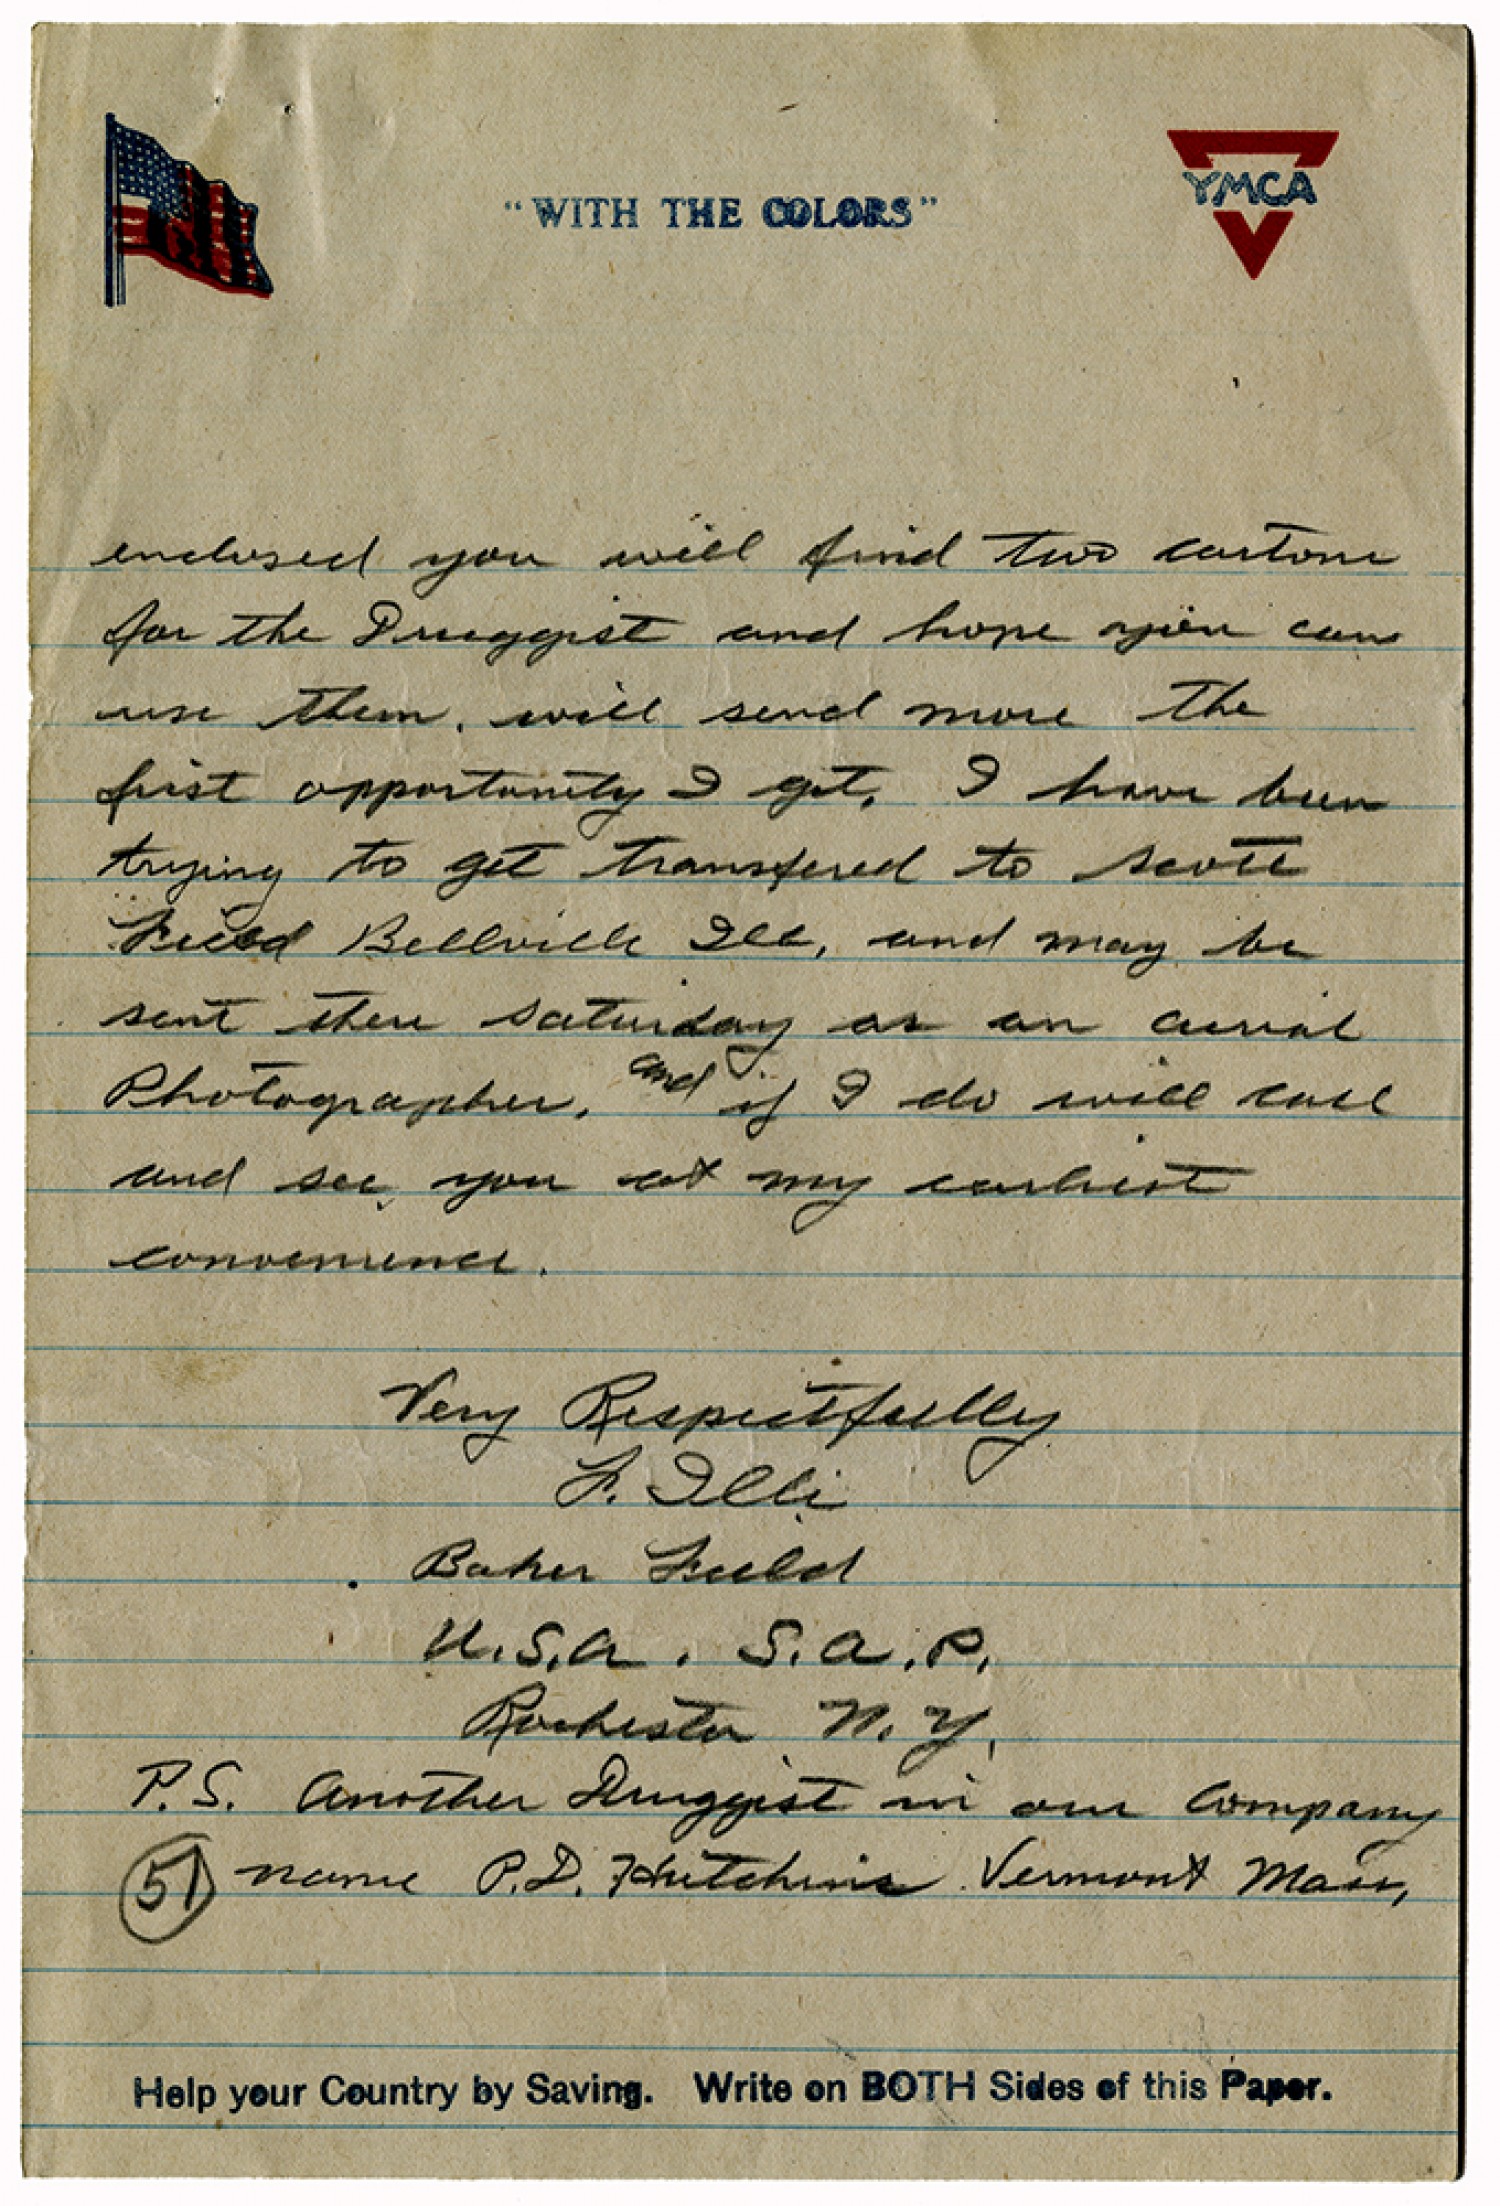 "WITH THE COLORS"
YMCA
enclosed you will find two cartons
for the Druggist and hope you can
use them. will send more the
first opportunity I get. I have been
trying to get transfered to Scott
Field Bellville Ill, and may be
sent there Saturday as an aerial
Photographer. and if I do will call
and see you at my earliest
convenience.
Very Respectfully
F. Illi
Baker Field
U.S.A. S.A.P.
Rochester N.Y.
P.S. Another Druggist in our Company
51 name P.D. Hutchins Vermont Mass,
Help your Country by Saving. Write on BOTH Sides of this Paper.